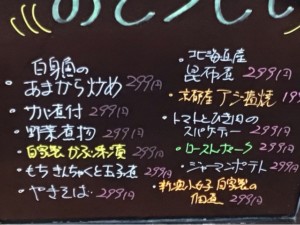 白身魚の
あまから炒め 299円
・カレイ煮付 299円
・野菜煮物 299円
・自家製 かぶ朱漬 299円
・もちきんちゃくと玉子煮 299円
・やきそば 299円
・北海道産
昆布煮 299円
・京都産アジ塩焼 199
・トマトとひき肉の
スパゲティー 299円
・ローストチキン 299円
・ジャーマンポテト 299円
自家製の
佃煮 299円